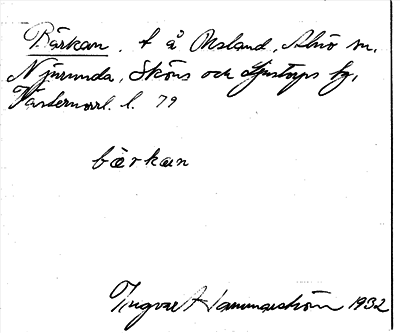 Bärkan, t å Alsland, Alnö sn,
Njurunda, Sköns och Ljustorps tg,
Västernorrl. l. 79
bärkan
Ingvar Hammarström 1932